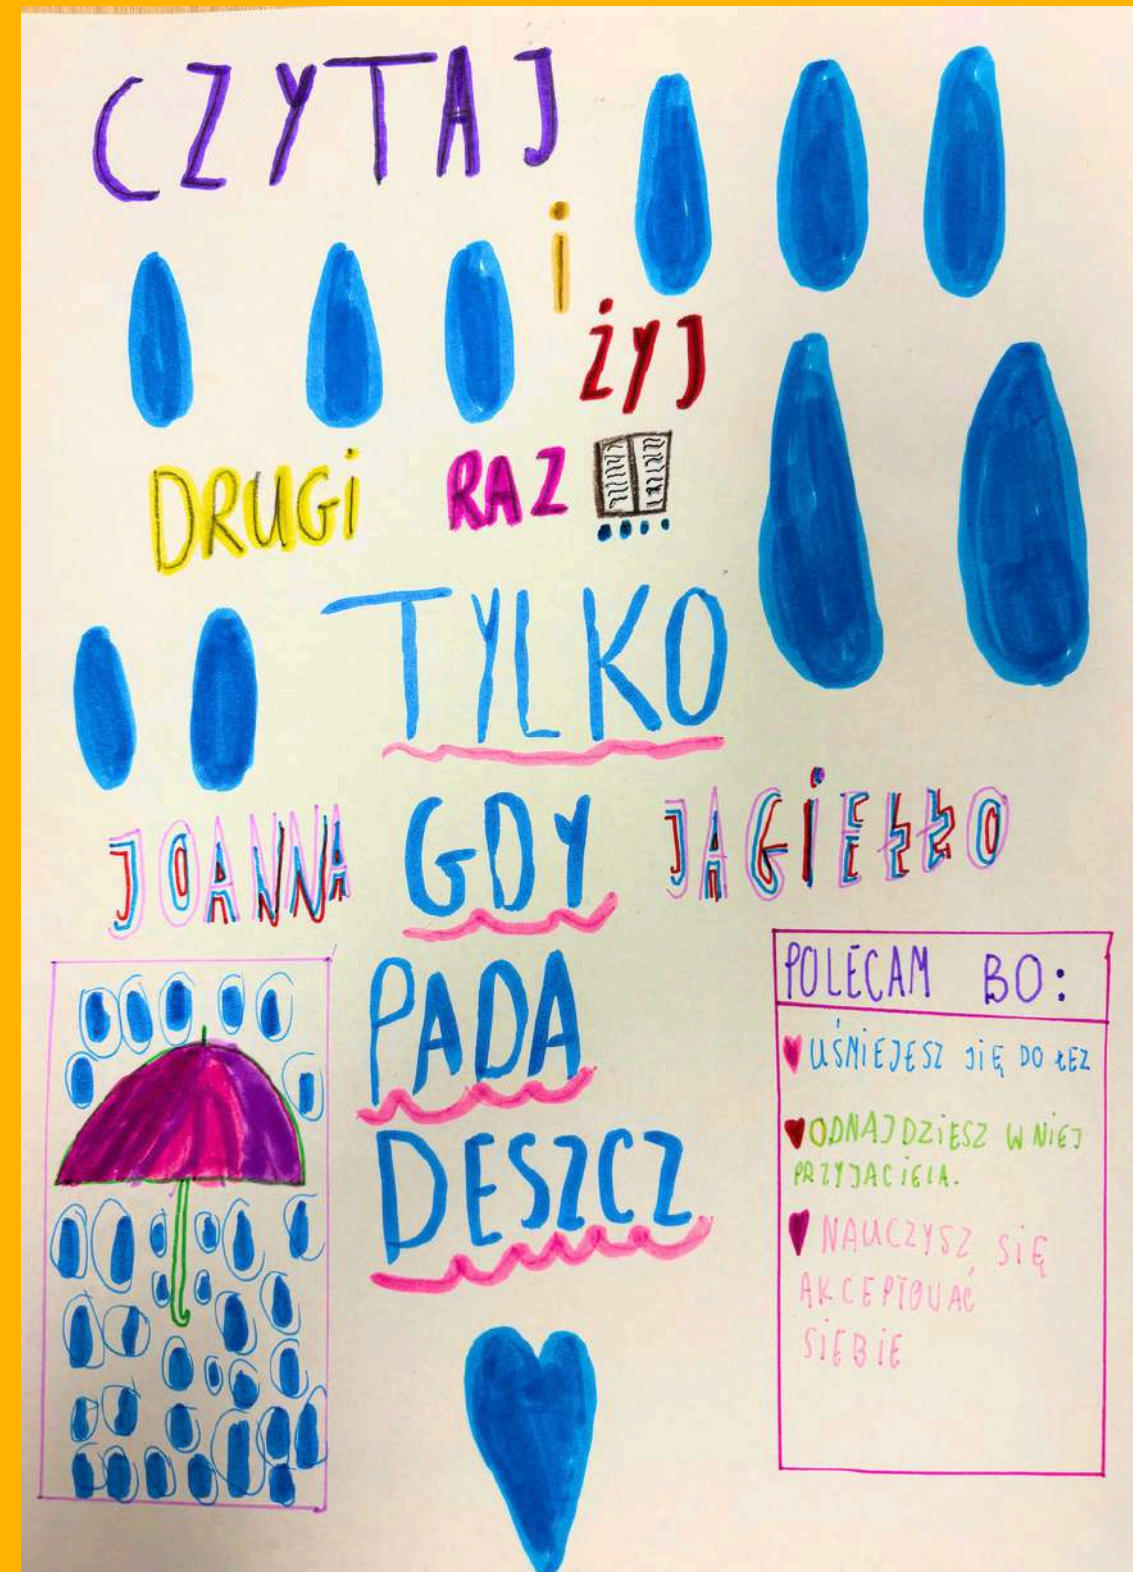 CZYTAJ
i
ŻYJ
DRUGi RAZ
TYLKO
JOANNA GDY JAGiEŁŁO
PADA
DESZCZ
POLECAM BO:
UŚMIEJESZ SiĘ DO ŁEZ
ODNAJDZiESZ W NiEJ
PRZYJACiELA.
NAUCZYSZ SiĘ
AKCEPTOWAĆ
SiEBiE